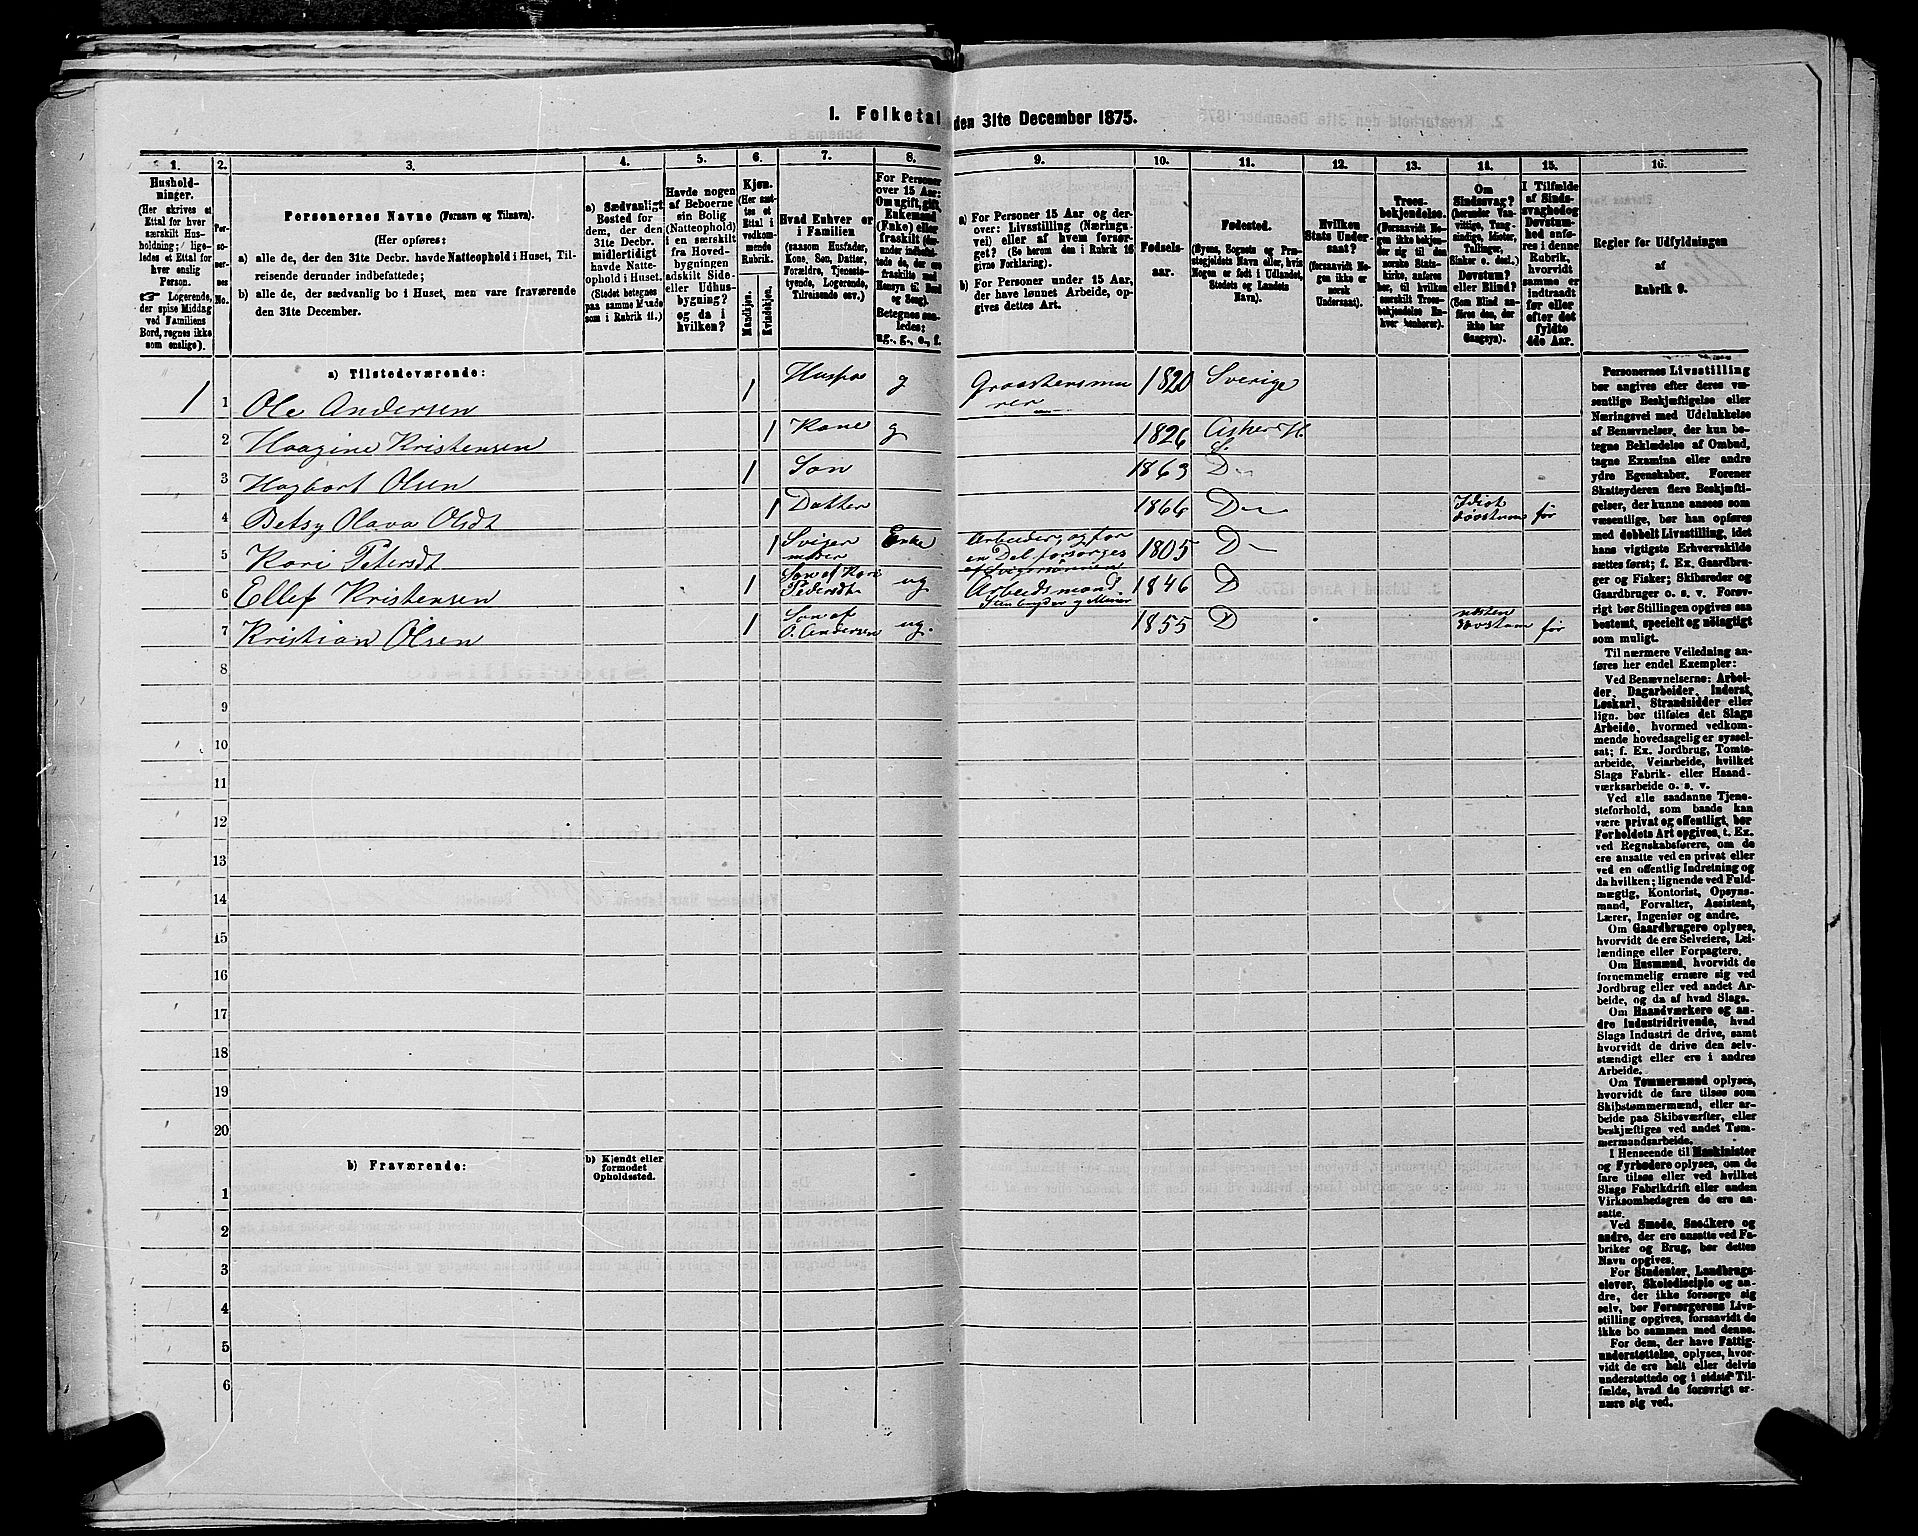 1. Folketal den 31te December 1875.
1. 2. 3. 4. 5. 6. 7. 8. 9. 10. 11. 12. 13. 14. 15. 16.
Hushold-
ninger.
(Her skrives et
Ettal for hver
særskilt Hus-
holdning; lige-
ledes et Ettal for
hver enslig
Person.
☞ Logerende,
der spise Middag
ved Familiens
Bord, regnes ikke
som enslige).
Per-
so-
ner-
nes
No.
Personernes Navne (Fornavn og Tilnavn).
(Her opføres:
a) alle de, der den 31te Decbr. havde Natteophold i Huset, Til-
reisende derunder indbefattede;
b) alle de, der sædvanlig bo i Huset, men vare fraværende
den 31te December.
a) Sædvanligt
Bosted for
dem, der den
31te Decbr.
midlertidigt
havde Natte-
ophold i Huset.
(Stedet betegnes
paa samme Maade
som i Rubrik 11.)
Havde nogen
af Beboerne
sin Bolig
(Natteophold)
i en særskilt
fra Hoved-
bygningen
adskilt Side-
eller Udhus-
bygning?
og da i
hvilken?
Kjøn.
(Her sæt-
tes et
Ettal i
vedkom-
mende
Rubrik.
Mandkjøn.
Kvindekjøn.
Hvad Enhver er
i Familien
(saasom Husfader,
Kone, Søn, Datter,
Forældre, Tjeneste-
tyende, Logerende,
Tilreisende osv.)
For Personer
over 15 Aar:
Om ugift, gift,
Enkemand
(Enke) eller
fraskilt
Betegnes saa-
ledes:
ug., g., e., f.
a) For Personer 15 Aar og der-
over: Livsstilling (Næring-
vei) eller af hvem forsør-
get. (Se herom den i Rubrik 16
givne Forklaring).
b) For Personer under 15 Aar,
der have lønnet Arbeide, op-
gives dettes Art.
Fødsels-
aar.
Fødested.
(Byens, Sognets og Præ-
stegjeldets Navn eller, hvis
Nogen er født i Udlandet,
Stedets og Landets
Navn).
Hvilken
Stats Under-
saat?
(forsaavidt No-
gen ikke er
norsk
Undersaat).
Troes-
bekjendelse.
(Forsaavidt No-
gen ikke bekjen-
der sig til den
norske Stats-
kirke, anføres
her, til hvilken
særskilt Troes-
bekjendelse En-
hver henhører).
Om
Sindssvag?
Døvstum?
eller Blind?
I Tilfælde
af Sinds-
svaghed og
Døvstum-
hed anfø-
res i denne
Rubrik,
hvorvidt
samme er
indtraadt
før eller
efter det
fyldte
4de Aar.
Regler for Udfyldningen
af
Rubrik 9.
a) Tilstedeværende:
1 1 Ole Andersen 1 Husfa g Graastensmu
rer 1820 Sverige
2 Haagine Kristensen 1 Kone g 1826 Asker H.
S.
3 Hagbart Olsen 1 Søn 1863 Do
4 Betsy Olava Olsdt 1 Datter 1866 Do Idiot
døvstum før
5 Kari Petersdt 1 Sviger
moder Enke Arbeider, og for
en Del forsørges
af Svigersønnen 1805 Do
6 Ellef Kristensen 1 Søn af Kari
Pedersdt ug Arbeidsmand 1846 D
7 Kristian Olsen 1 Søn af
O. Andersen ug. 1855 D næsten
døvstum før
8
9
10
11
12
13
14
15
16
17
18
19
20
b) Fraværende:
b) Kjendt eller
formodet
Opholdssted.
1
2
3
4
5
6
Personernes Livsstilling
bør angives efter deres væ-
sentlige Beskjæftigelse eller
Næringsvei med Udelukkelse
af Benævnelser, der kun be-
tegne Beklædelse af Ombud,
tagne Examina eller andre
ydre Egenskaber. Forener
Skatteyderen flere Beskjæfti-
gelser, der kunne ansees som
væsentlige, bør han opføres
med dobbelt Livsstilling, idet
hans vigtigste Erhvervskilde
sættes først; f. Ex. Gaardbru-
ger og Fisker; Skibsreder og
Gaardbruger o. s. v. Forøv-
rigt bør Stillingen opgives saa
bestemt, specielt og nøiagtigt
som muligt.
Til nærmere Veiledning an-
føres her endel Exempler:
Ved Benævnelserne: Arbei-
der, Dagarbeider, Inderst,
Løskarl, Strandsidder eller
lign. bør tilføies det Slags
Arbeide, hvormed vedkom-
mende hovedsagelig er syssel-
sat; f. Ex. Jordbrug, Tomte-
arbeide, Veiarbeide, hvilket
Slags Fabrik- eller Haand-
værksarbeide o. s. v.
Ved alle saadanne Tjene-
steforhold, som baade kan
være privat og offentligt, bør
Forholdets Art opgives, t. Ex.
ved Regnskabsførere, om de
ere ansatte ved en privat eller
ved en offentlig Indretning og
da hvilken; lignende ved Fuld-
mægtig, Kontorist, Opsyns-
mand, Forvalter, Assistent,
Lærer, Ingeniør og andre.
Om Gaardbrugere oplyses,
hvorvidt de ere Selveiere, Lei-
lændinge eller Forpagtere.
Om Husmænd, hvorvidt de
fornemmelig ernære sig ved
Jordbrug eller ved andet Ar-
beide, og da af hvad Slags.
Om Haandværkere og an-
dre Industridrivende, hvad
Slags Industri de drive, samt
hvorvidt de drive den selv-
stændigt eller ere i andres
Arbeide.
Om Tømmermænd oplyses,
hvorvidt de fare tilsøs som
Skibstømmermænd, eller ar-
beide paa Skibsværfter, eller
beskjæftiges ved andet Tøm-
mermandsarbeide.
I Henseende til Maskinister
og Fyrbødere oplyses, om de
fare tilsøs eller ved hvilket
Slags Fabrikdrift eller anden
Virksomhed de ere an-
satte.
Ved Smede, Snedkere og
andre, der ere ansatte ved Fa-
briker og Brug, bør dettes
Navn opgives.
For Studenter, Landbrugs-
elever, Skoledisciple og an-
dre, der ikke forsørge sig
selv, bør Forsørgerens Livs-
stilling opgives, forsaavidt de
ikke bo sammen med denne.
For dem, der have Fattig-
understøttelse, oplyses, hvor-
vidt de ere helt eller delvis
understøttede og i sidste Til-
fælde, hvad de forøvrigt er-
nære sig ved.